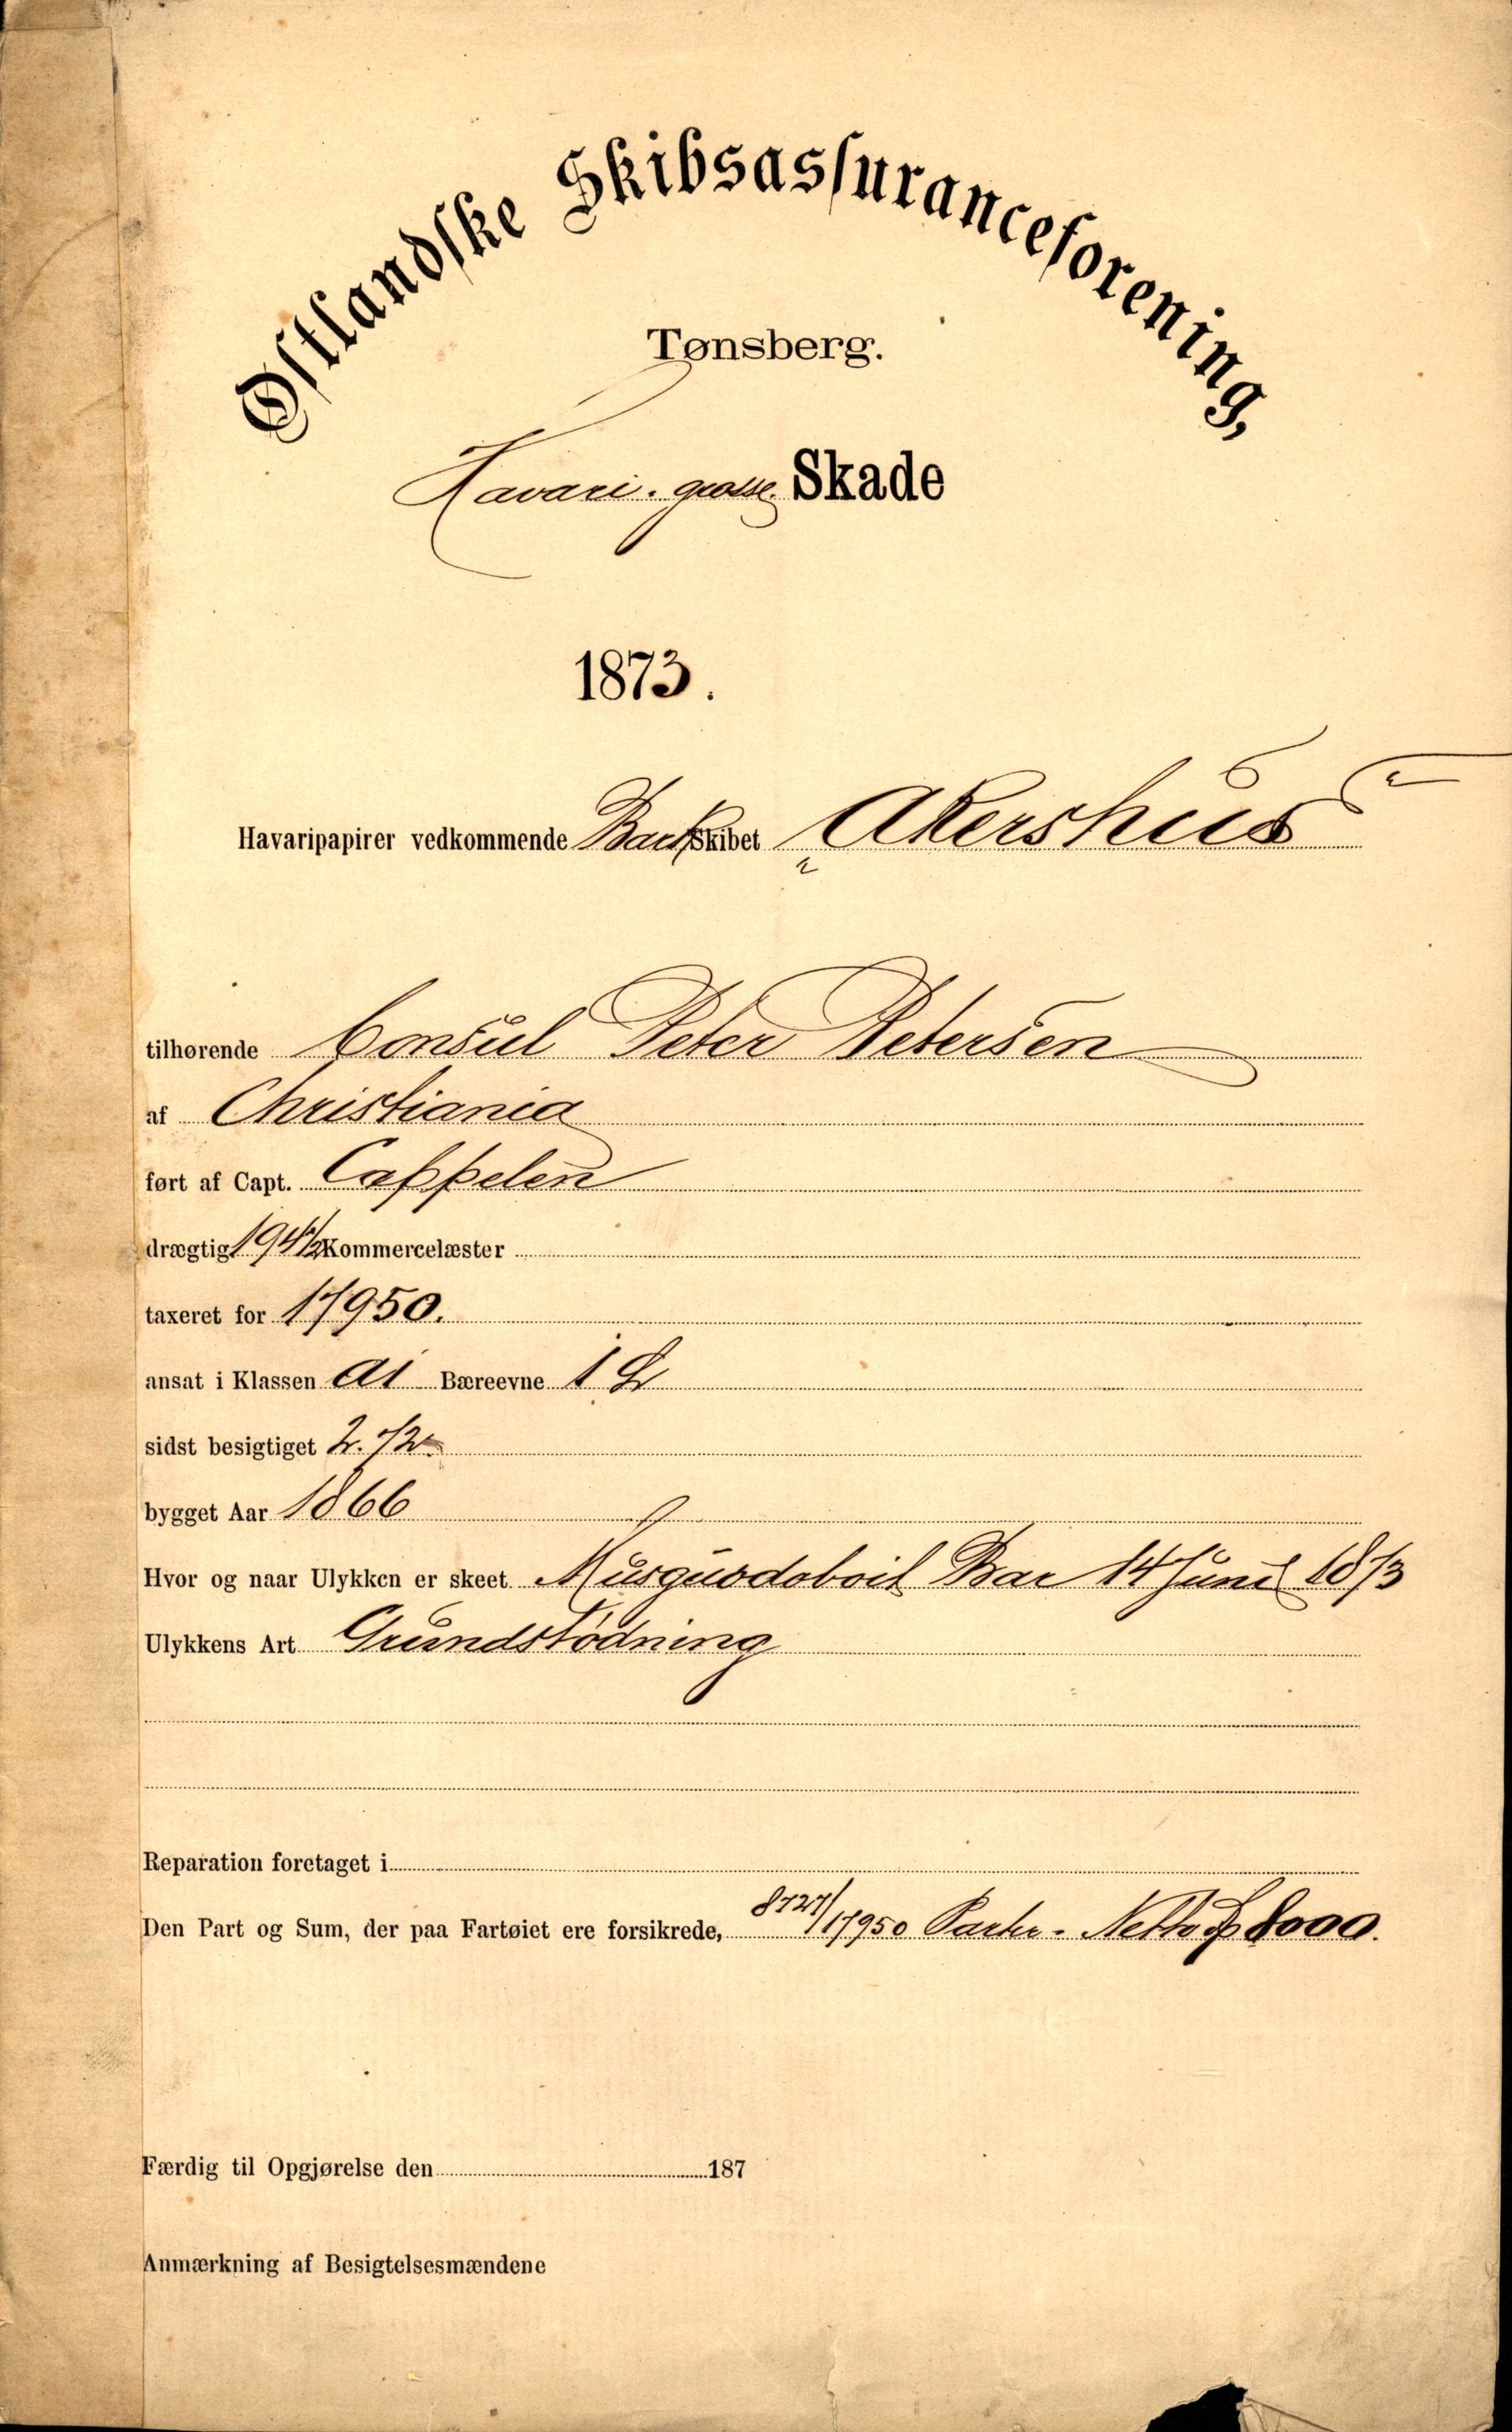 Østlandske Skibsassuranceforening,
Tønsberg.
Havari. grosse. Skade
1873.
Havaripapirer vedkommende Bark Skibet „Akershus“
tilhørende Consul Peter Petersen
af Christiania
ført af Capt. Cappelen
drægtig 194 1/2 Kommercelæster
taxeret for 17950.
ansat i Klassen A1 Bæreevne 1
sidst besigtiget 2. 72.
bygget Aar 1866
Hvor og naar Ulykken er skeet Musquodoboit Bar 14 Juni 1873
Ulykkens Art Grundstødning
Reparation foretaget i
Den Part og Sum, der paa Fartøiet ere forsikrede, 8727/17950 Parter - Netto 8000.
Færdig til Opgjørelse den 187
Anmærkning af Besigtelsesmændene